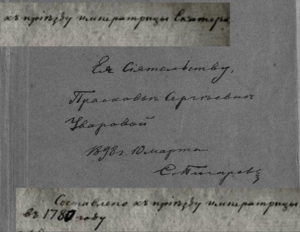 къ проѣзду императрицы Екатери
Ея Сіятельству,
Прасковьѣ Сергѣевнѣ
Уваровой
1898 г. 10 марта
Составлено къ проѣзду императрицы
въ 1780 году